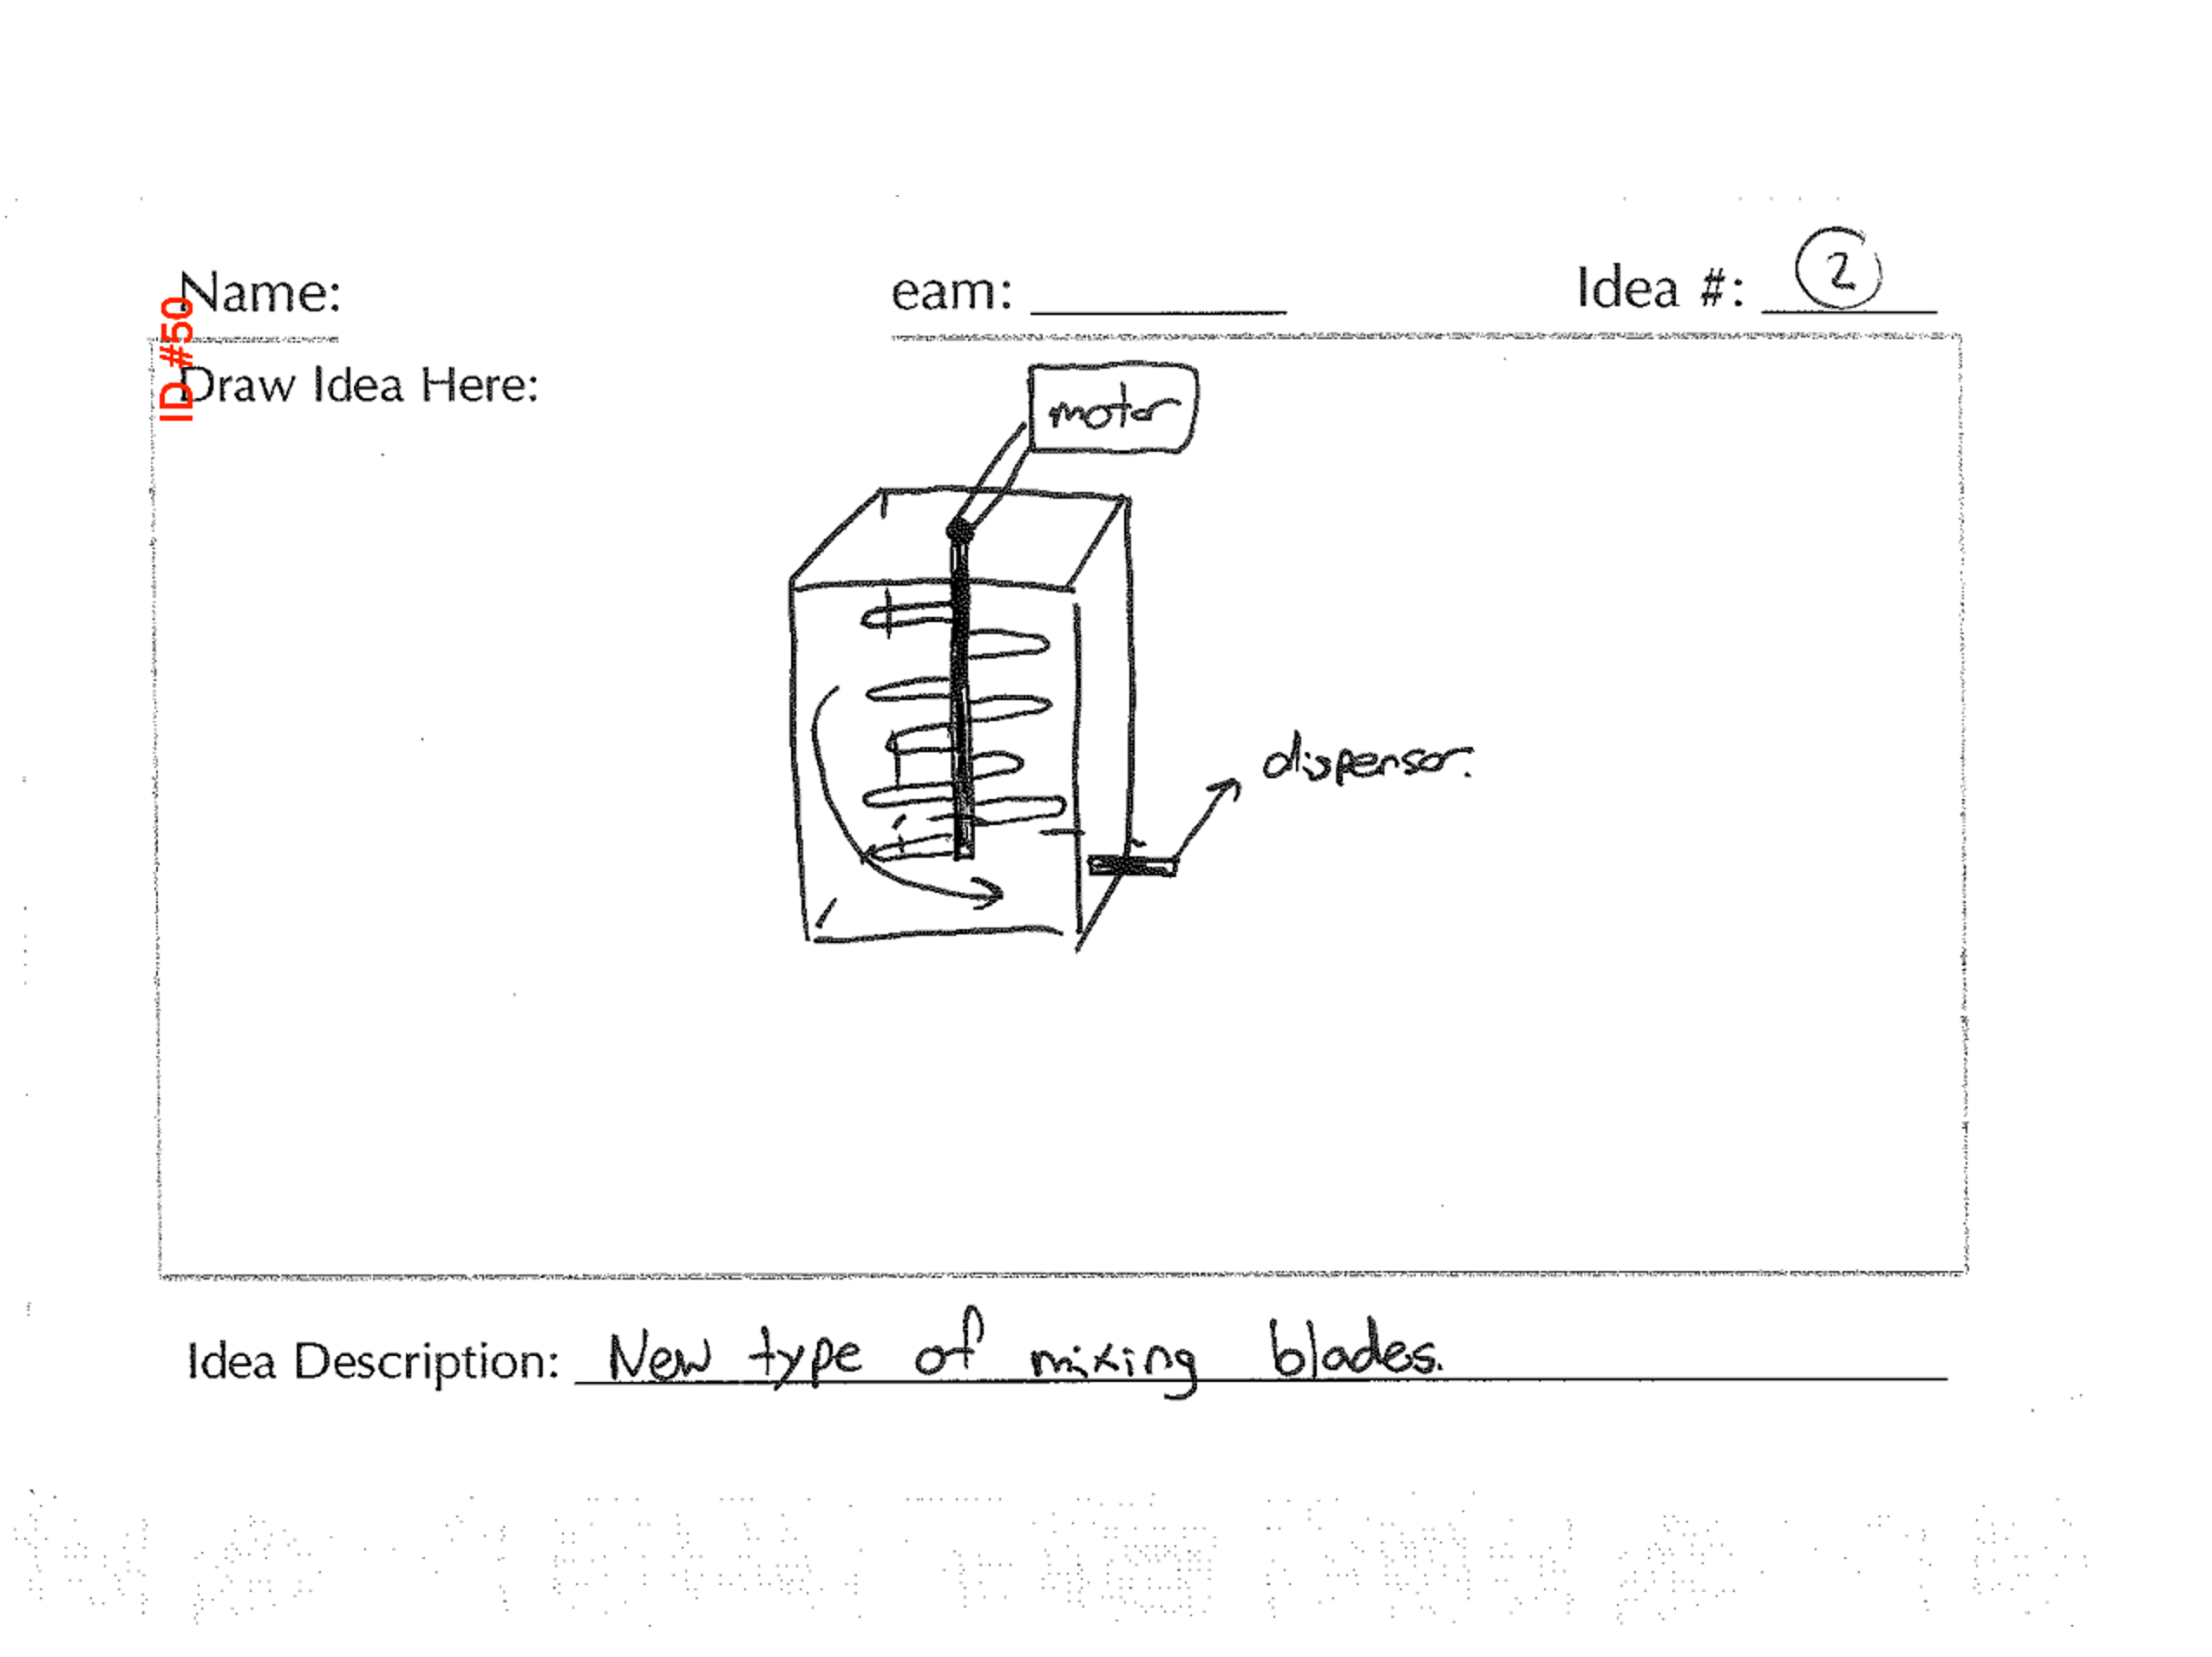 Name: eam: Idea #: 2
ID #50
Draw Idea Here:
motor
dispensor.
Idea Description: New type of mixing blades.